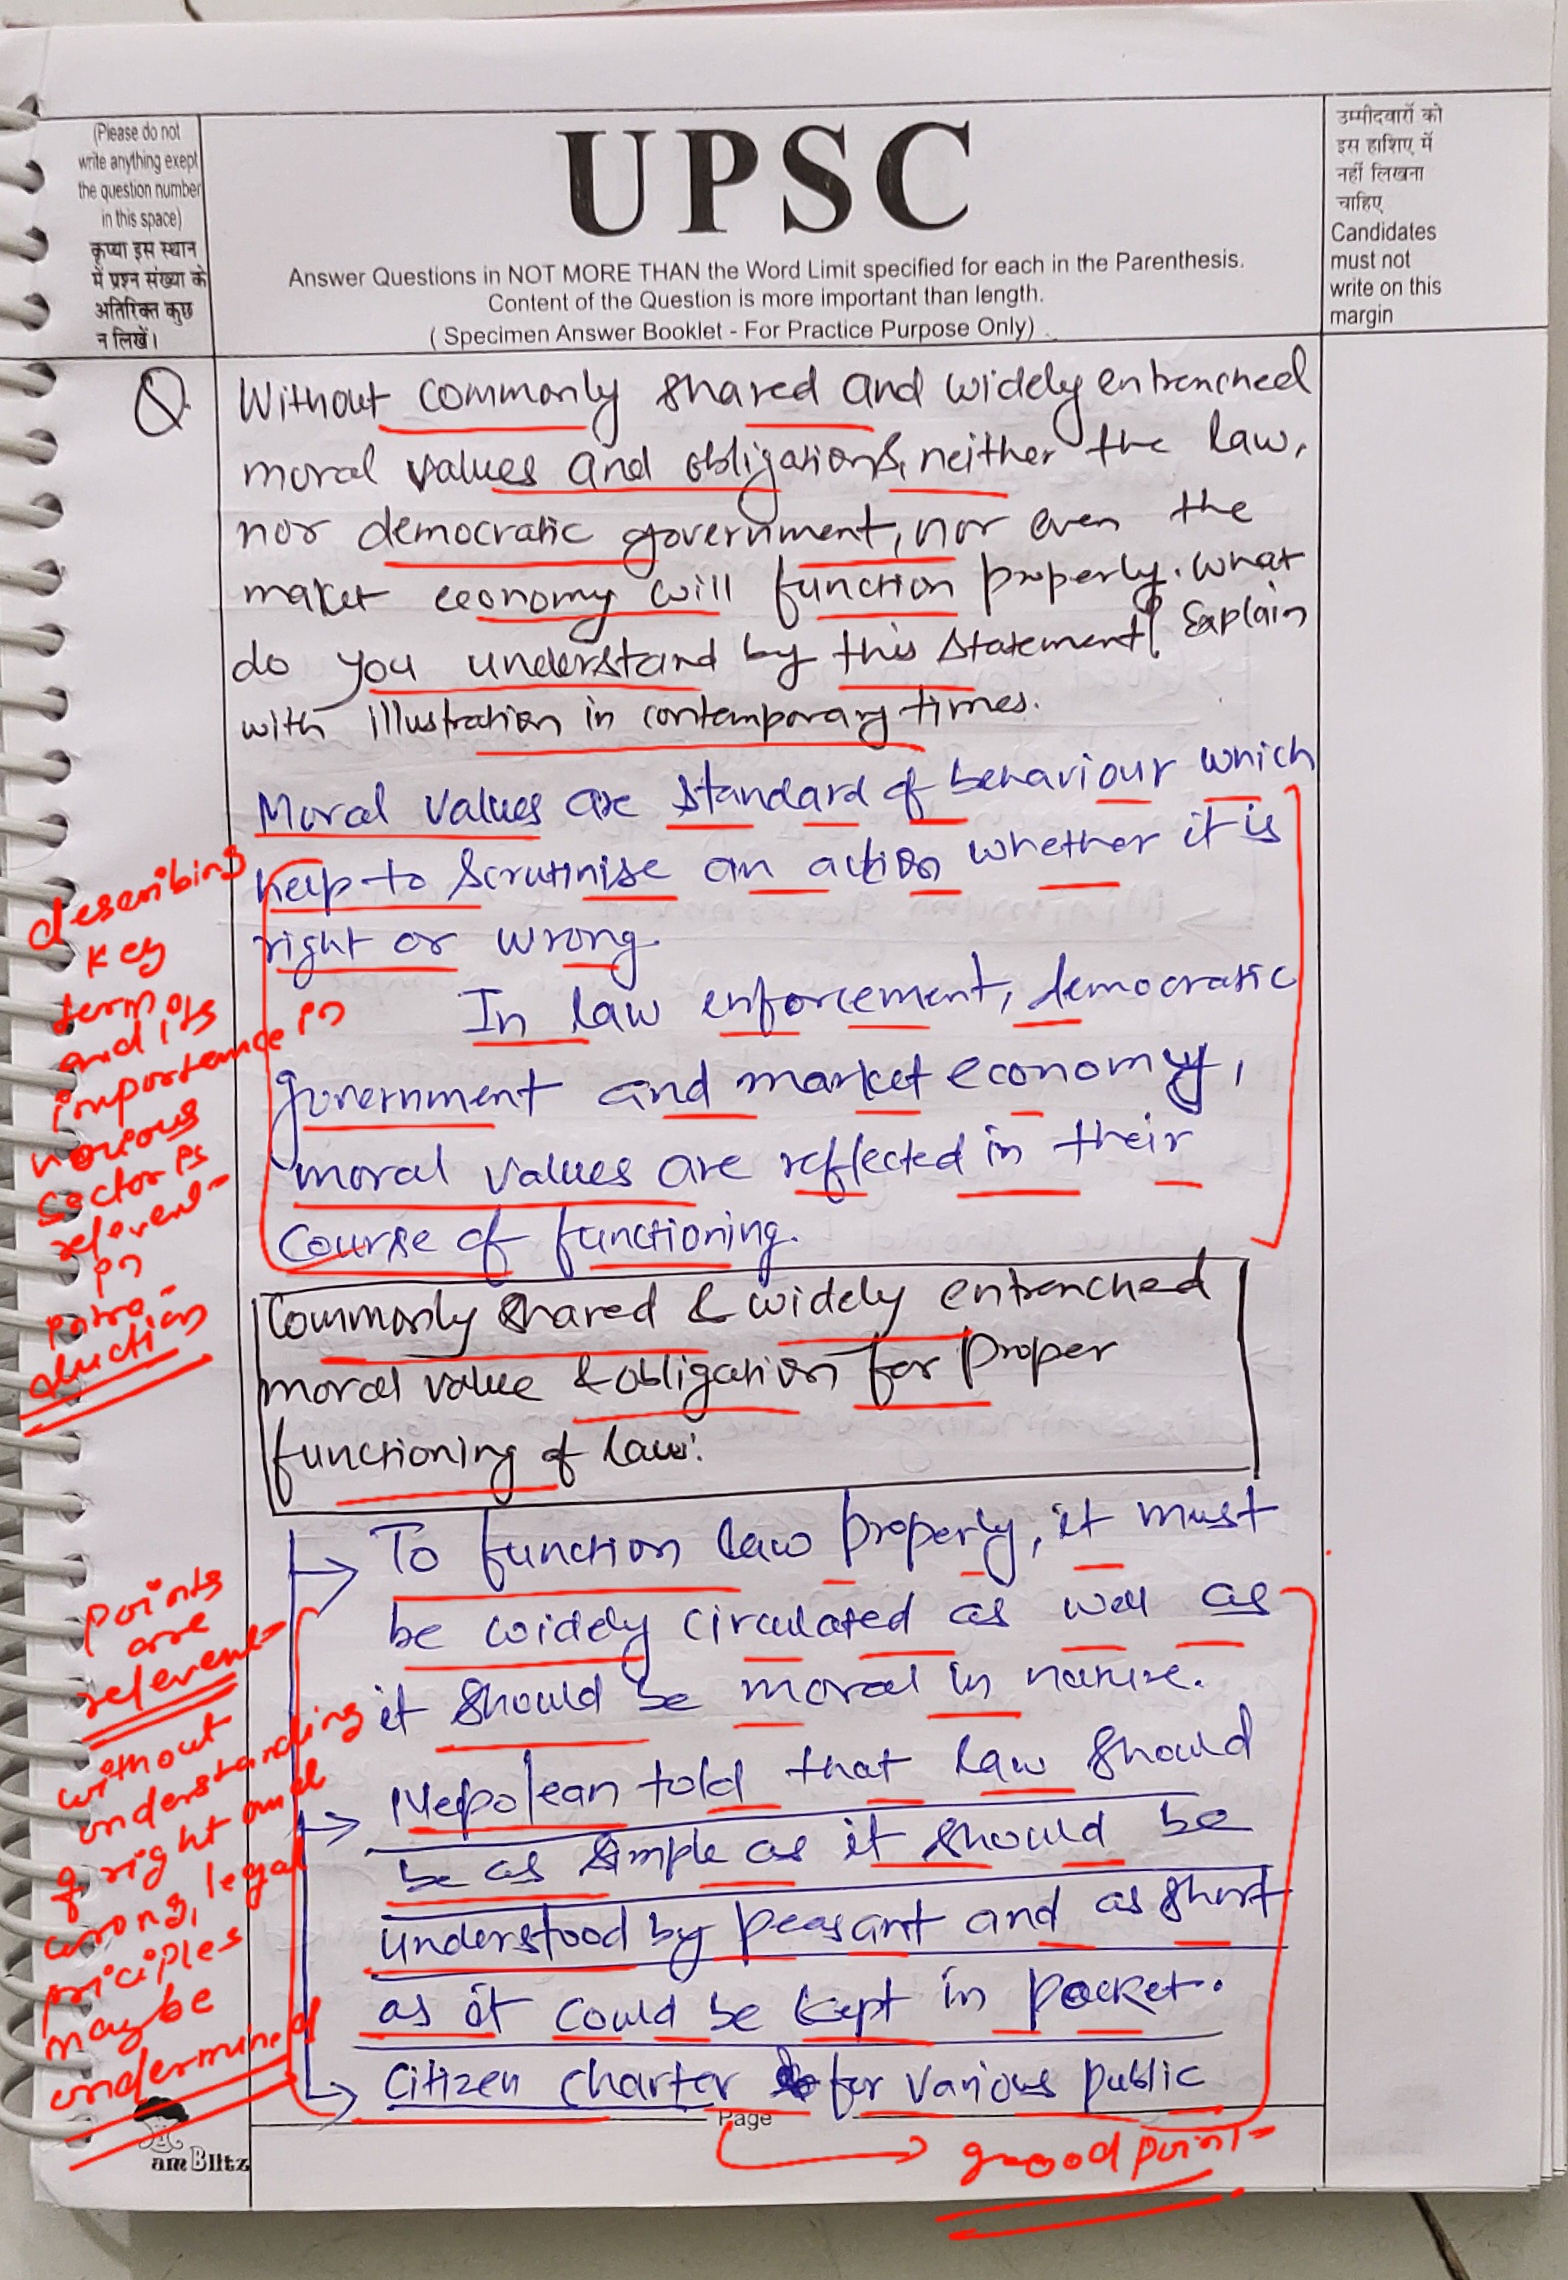 (Please do not
write anything exept
the question number
in this space)
कृप्या इस स्थान
में प्रश्न संख्या के
अतिरिक्त कुछ
न लिखें।
UPSC
Answer Questions in NOT MORE THAN the Word Limit specified for each in the Parenthesis.
Content of the Question is more important than length.
( Specimen Answer Booklet - For Practice Purpose Only)
उम्मीदवारों को
इस हाशिए में
नहीं लिखना
चाहिए
Candidates
must not
write on this
margin
Q. Without commonly shared and widely entrenched
moral values and obligations, neither the law,
nor democratic government, nor even the
maket economy will function properly. What
do you understand by this statement? Explain
with illustration in contemporary times.
Moral values are standard of behaviour which
help to scrutinise an action whether it is
right or wrong.
In law enforcement, democratic
government and market economy,
moral values are reflected in their
course of functioning.
describing
key
terms
and its
importance in
various
sector is
relevent
in
intro-
duction
Commonly shared & widely entrenched
moral value & obligation for proper
functioning of law:
To function law properly, it must
be widely circulated as well as
it should be moral in nature.
Nepolean told that law should
be as simple as it should be
understood by peasant and as short
as it could be kept in pocket.
Citizen charter for various public
points
are
relevent
without
understanding
of right and
wrong, legal
priciples
maybe
undermined
Page
good point
am Blitz